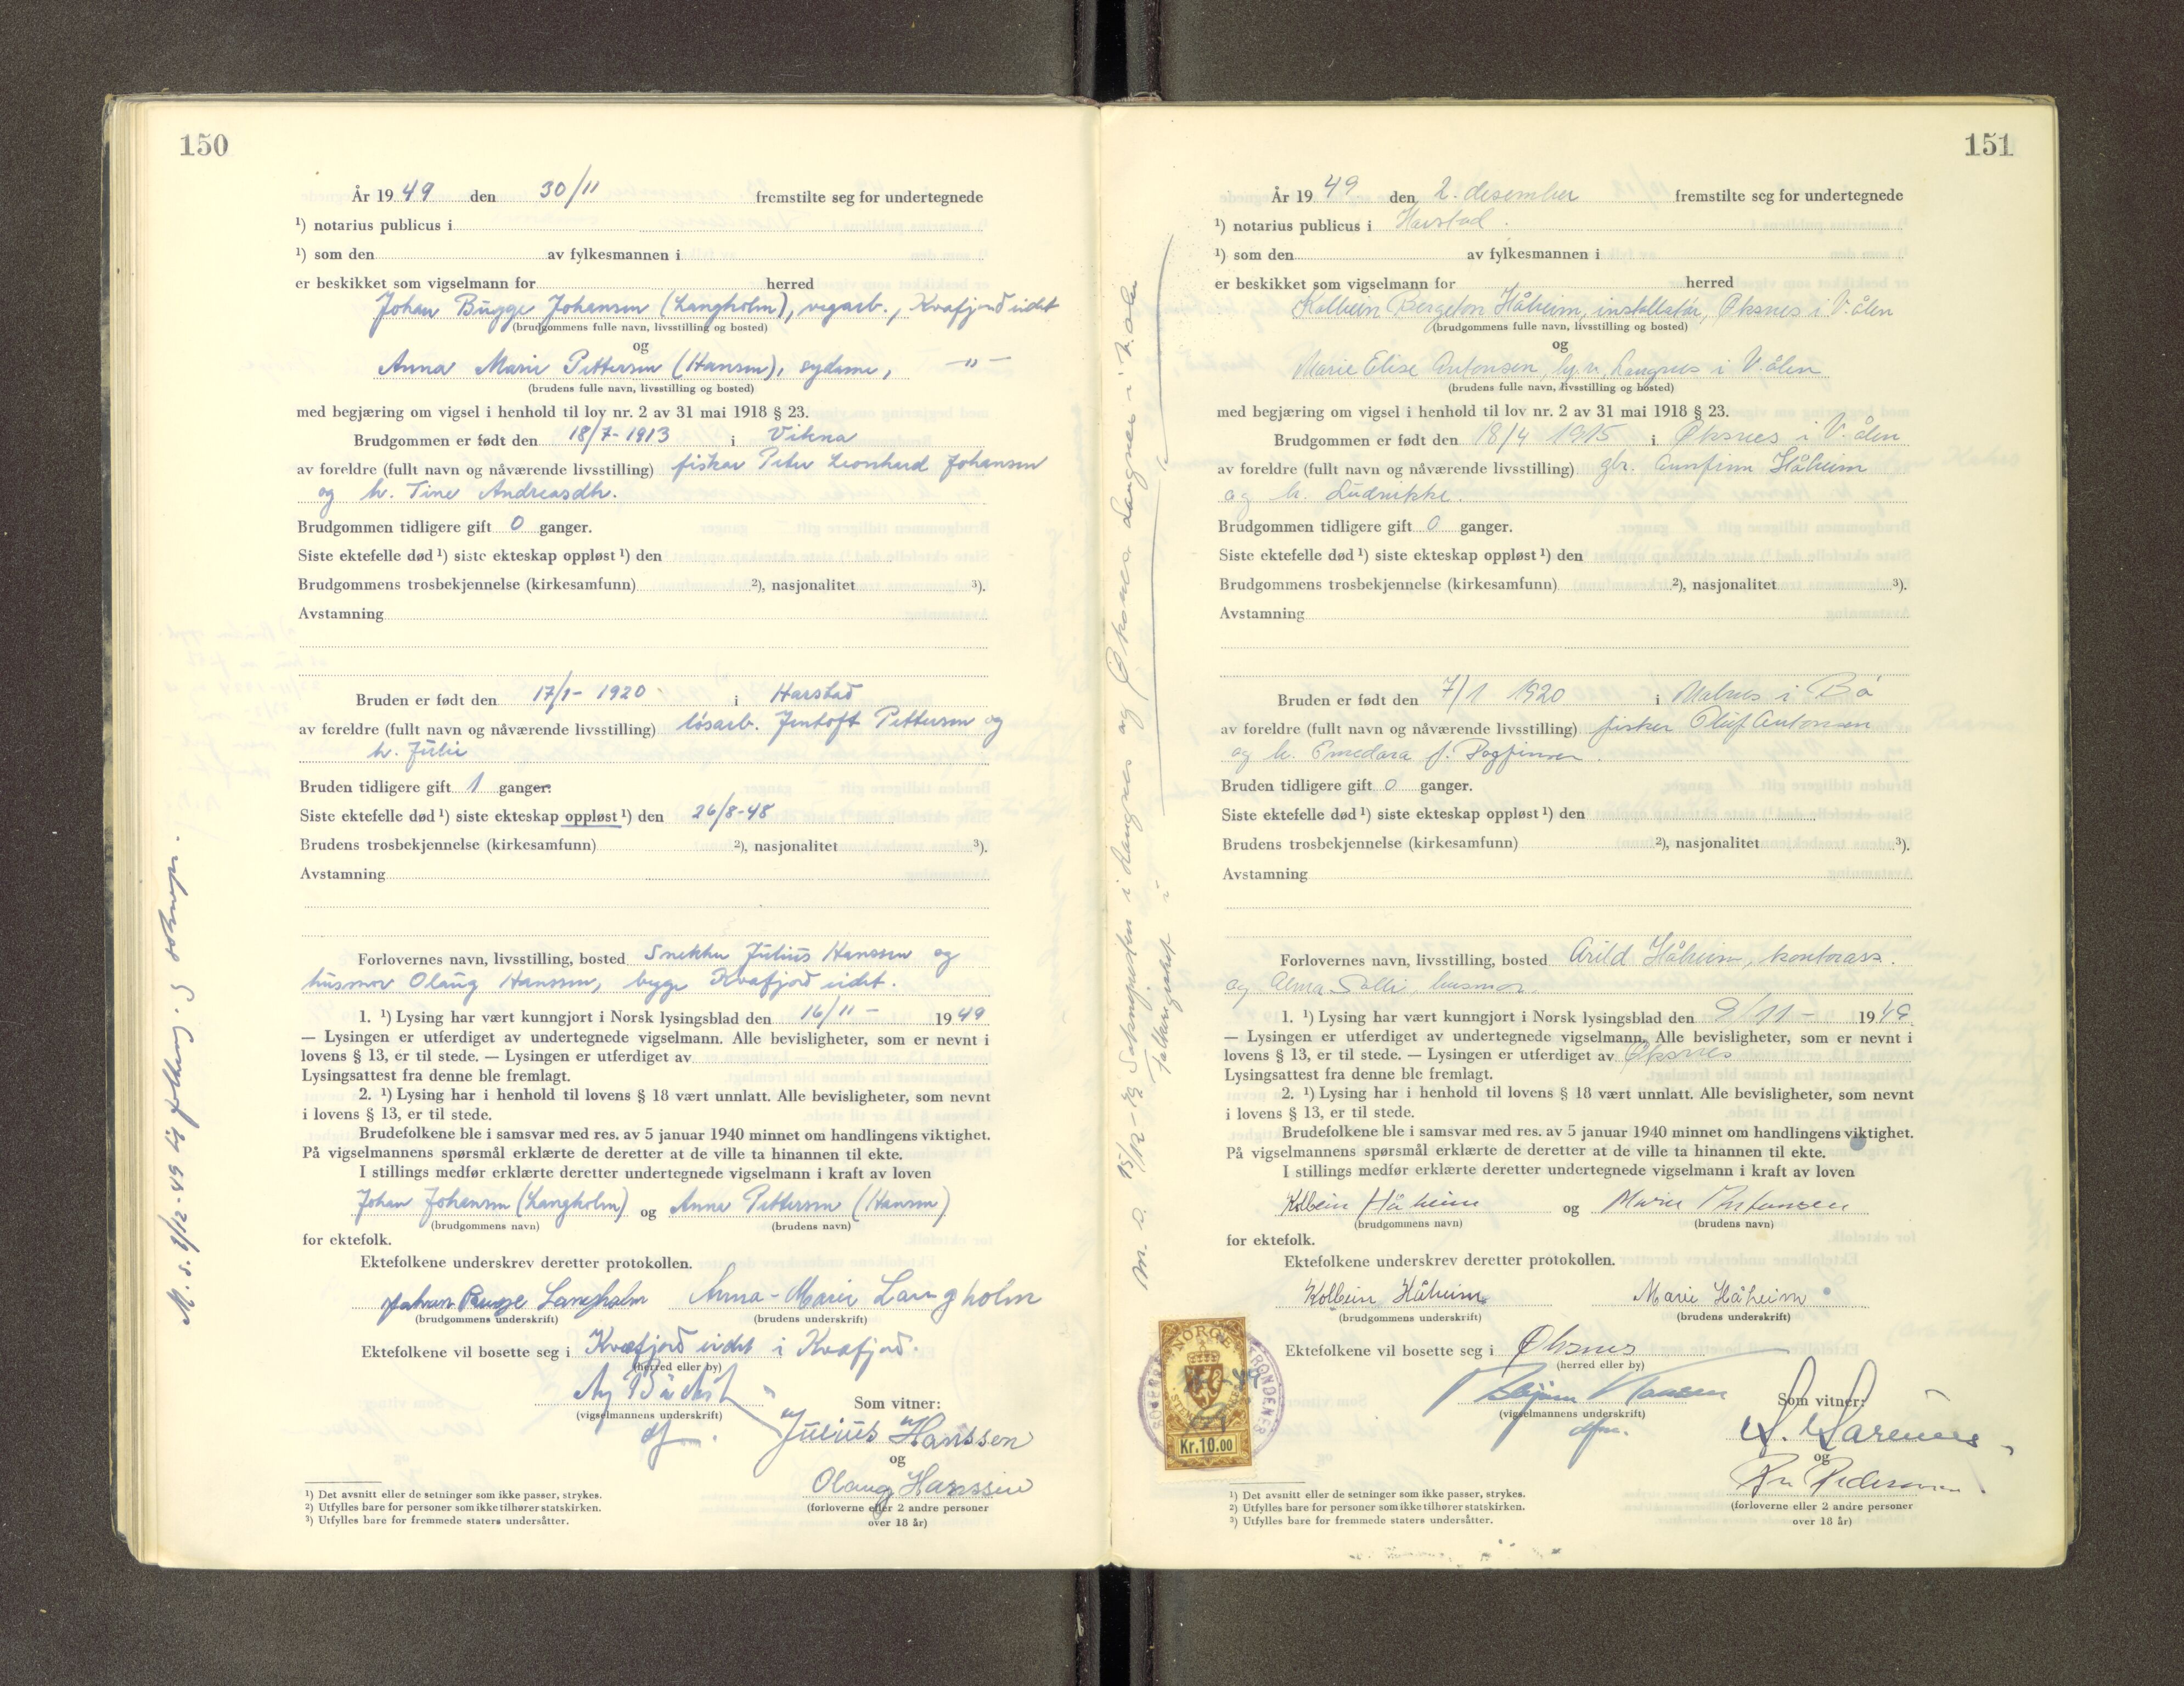 150
År 19 49 den 30/11 fremstilte seg for undertegnede
¹) notarius publicus i
¹) som den av fylkesmannen i
er beskikket som vigselmann for herred
Johan Bugge Johansen (Langholm), vegarb., Kvæfjord indst
(brudgommens fulle navn, livsstilling og bosted)
og
Anna Marie Pettersen (Hansen), sydame, -"-
(brudens fulle navn, livsstilling og bosted)
med begjæring om vigsel i henhold til lov nr. 2 av 31 mai 1918 § 23.
Brudgommen er født den 18/7-1913 i Vikna
av foreldre (fullt navn og nåværende livsstilling) fisker Peter Leonhard Johansen
og h. Tine Andreasdh.
Brudgommen tidligere gift 0 ganger.
Siste ektefelle død ¹) siste ekteskap oppløst ¹) den
Brudgommens trosbekjennelse (kirkesamfunn) ²), nasjonalitet ³).
Avstamning
Bruden er født den 17/1- 1920 i Harstad
av foreldre (fullt navn og nåværende livsstilling) løsarb. Jentoft Pettersen og
h. Julie
Bruden tidligere gift 1 ganger.
Siste ektefelle død ¹) siste ekteskap oppløst ¹) den 26/8-48
Brudens trosbekjennelse (kirkesamfunn) ²), nasjonalitet ³).
Avstamning
Forlovernes navn, livsstilling, bosted Snekker Julius Hanssen og
husmor Olaug Hanssen, begge Kvæfjord indst.
1. ¹) Lysing har vært kunngjort i Norsk lysingsblad den 16/11 - 19 49
— Lysingen er utferdiget av undertegnede vigselmann. Alle bevisligheter, som er nevnt i
lovens § 13, er til stede. — Lysingen er utferdiget av
Lysingsattest fra denne ble fremlagt.
2. ¹) Lysing har i henhold til lovens § 18 vært unnlatt. Alle bevisligheter, som nevnt
i lovens § 13, er til stede.
Brudefolkene ble i samsvar med res. av 5 januar 1940 minnet om handlingens viktighet.
På vigselmannens spørsmål erklærte de deretter at de ville ta hinannen til ekte.
I stillings medfør erklærte deretter undertegnede vigselmann i kraft av loven
Johan Johansen (Langholm) og Anna Pettersen (Hansen)
(brudgommens navn) (brudens navn)
for ektefolk.
Ektefolkene underskrev deretter protokollen.
Johan Bugge Langholm Anna-Marie Langholm
(brudgommens underskrift) (brudens underskrift)
Ektefolkene vil bosette seg i Kvæfjord indst i Kvæfjord.
(herred eller by)
(vigselmannens underskrift)
Som vitner:
Julius Hanssen
og
Olaug Hanssen
(forloverne eller 2 andre personer
over 18 år)
¹) Det avsnitt eller de setninger som ikke passer, strykes.
²) Utfylles bare for personer som ikke tilhører statskirken.
³) Utfylles bare for fremmede staters undersåtter.
151
År 19 49 den 2. desember fremstilte seg for undertegnede
¹) notarius publicus i Harstad.
¹) som den av fylkesmannen i
er beskikket som vigselmann for herred
Kolbein Bergeton Håheim, installatør, Øksnes i V.ålen
(brudgommens fulle navn, livsstilling og bosted)
og
Marie Elise Antonsen, Langnes i V.ålen
(brudens fulle navn, livsstilling og bosted)
med begjæring om vigsel i henhold til lov nr. 2 av 31 mai 1918 § 23.
Brudgommen er født den 18/4 1915 i Øksnes i V.ålen
av foreldre (fullt navn og nåværende livsstilling) gbr. Arnfinn Håheim
og h. Ludvikke.
Brudgommen tidligere gift 0 ganger.
Siste ektefelle død ¹) siste ekteskap oppløst ¹) den
Brudgommens trosbekjennelse (kirkesamfunn) ²), nasjonalitet ³).
Avstamning
Bruden er født den 7/1 1920 i Malnes i Bø
av foreldre (fullt navn og nåværende livsstilling) fisker Oluf Antonsen
og h. Emedara f. Dagfinsen.
Bruden tidligere gift 0 ganger.
Siste ektefelle død ¹) siste ekteskap oppløst ¹) den
Brudens trosbekjennelse (kirkesamfunn) ²), nasjonalitet ³).
Avstamning
Forlovernes navn, livsstilling, bosted Arild Håheim, kontorass.
og Alma Solli, husmor.
1. ¹) Lysing har vært kunngjort i Norsk lysingsblad den 9/11 - 19 49
— Lysingen er utferdiget av undertegnede vigselmann. Alle bevisligheter, som er nevnt i
lovens § 13, er til stede. — Lysingen er utferdiget av Øksnes
Lysingsattest fra denne ble fremlagt.
2. ¹) Lysing har i henhold til lovens § 18 vært unnlatt. Alle bevisligheter, som nevnt
i lovens § 13, er til stede.
Brudefolkene ble i samsvar med res. av 5 januar 1940 minnet om handlingens viktighet.
På vigselmannens spørsmål erklærte de deretter at de ville ta hinannen til ekte.
I stillings medfør erklærte deretter undertegnede vigselmann i kraft av loven
Kolbein Håheim og Marie Antonsen
(brudgommens navn) (brudens navn)
for ektefolk.
Ektefolkene underskrev deretter protokollen.
Kolbein Håheim Marie Håheim
(brudgommens underskrift) (brudens underskrift)
Ektefolkene vil bosette seg i Øksnes
(herred eller by)
(vigselmannens underskrift)
Som vitner:
og
Pedersen
(forloverne eller 2 andre personer
over 18 år)
NORGE
Kr.10.00
¹) Det avsnitt eller de setninger som ikke passer, strykes.
²) Utfylles bare for personer som ikke tilhører statskirken.
³) Utfylles bare for fremmede staters undersåtter.